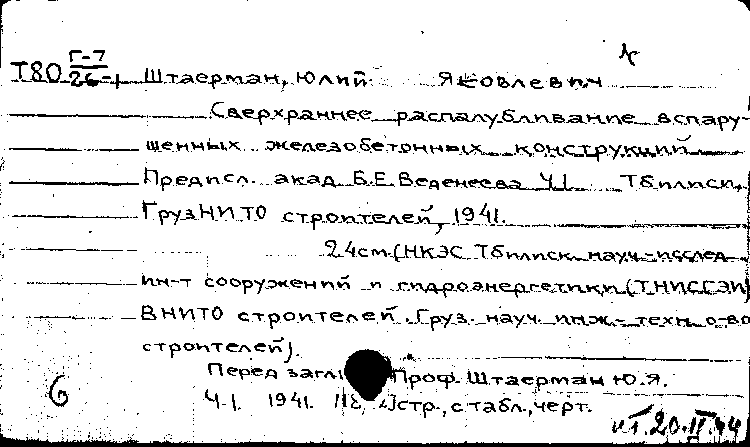 Т80 Г-7
26-1 Штаерман, Юлий Яковлевич
Сверхраннее распалубливание вспару-
шенных железобетонных конструкций
Предисл. акад. Б.Е. Веденеева Ч.I Тбилиси,
ГрузНИТО строителей, 1941.
24см. (НКЭС Тбилисск. науч.-исслед.
ин-т сооружений и гидроэнергетики (ТНИСГЭИ)
ВНИТО строителей. Груз. науч. инж.-техн. о-во
строителей).
Перед загл.: Проф. Штаерман Ю.Я.
Ч.I. 1941. стр., с табл., черт.
6
20.II.44